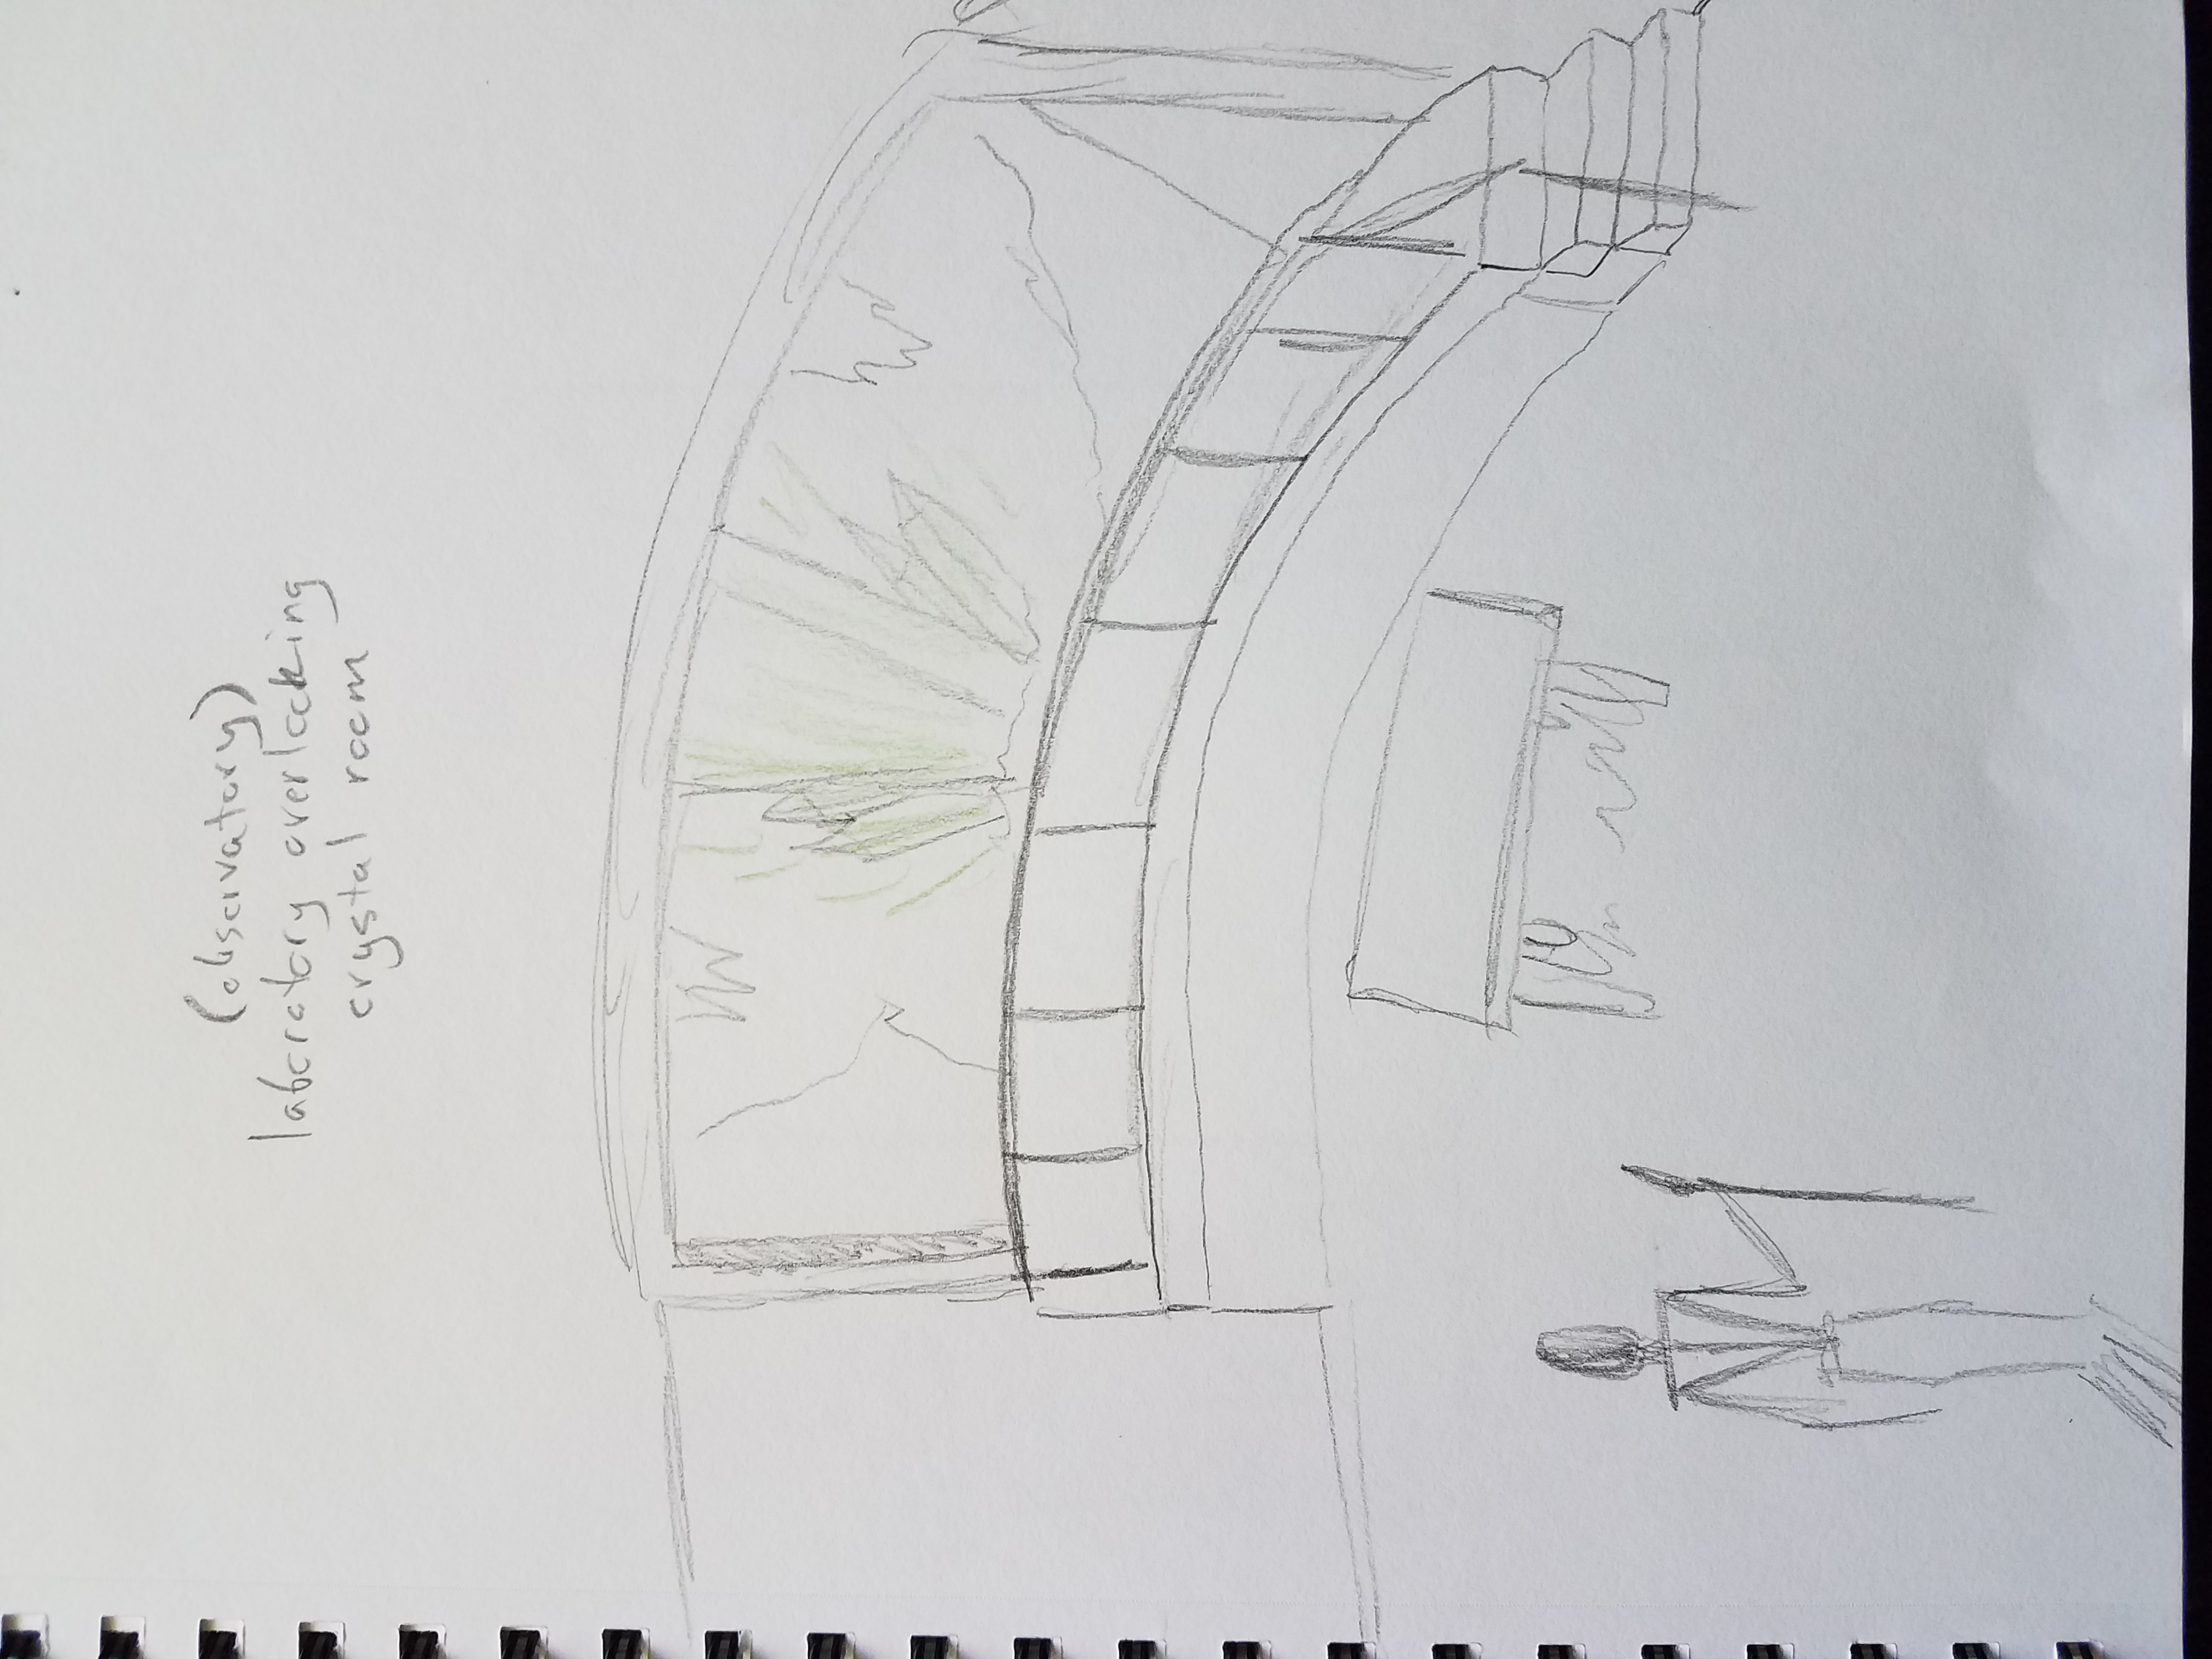 (observatory)
laboratory overlooking
crystal room